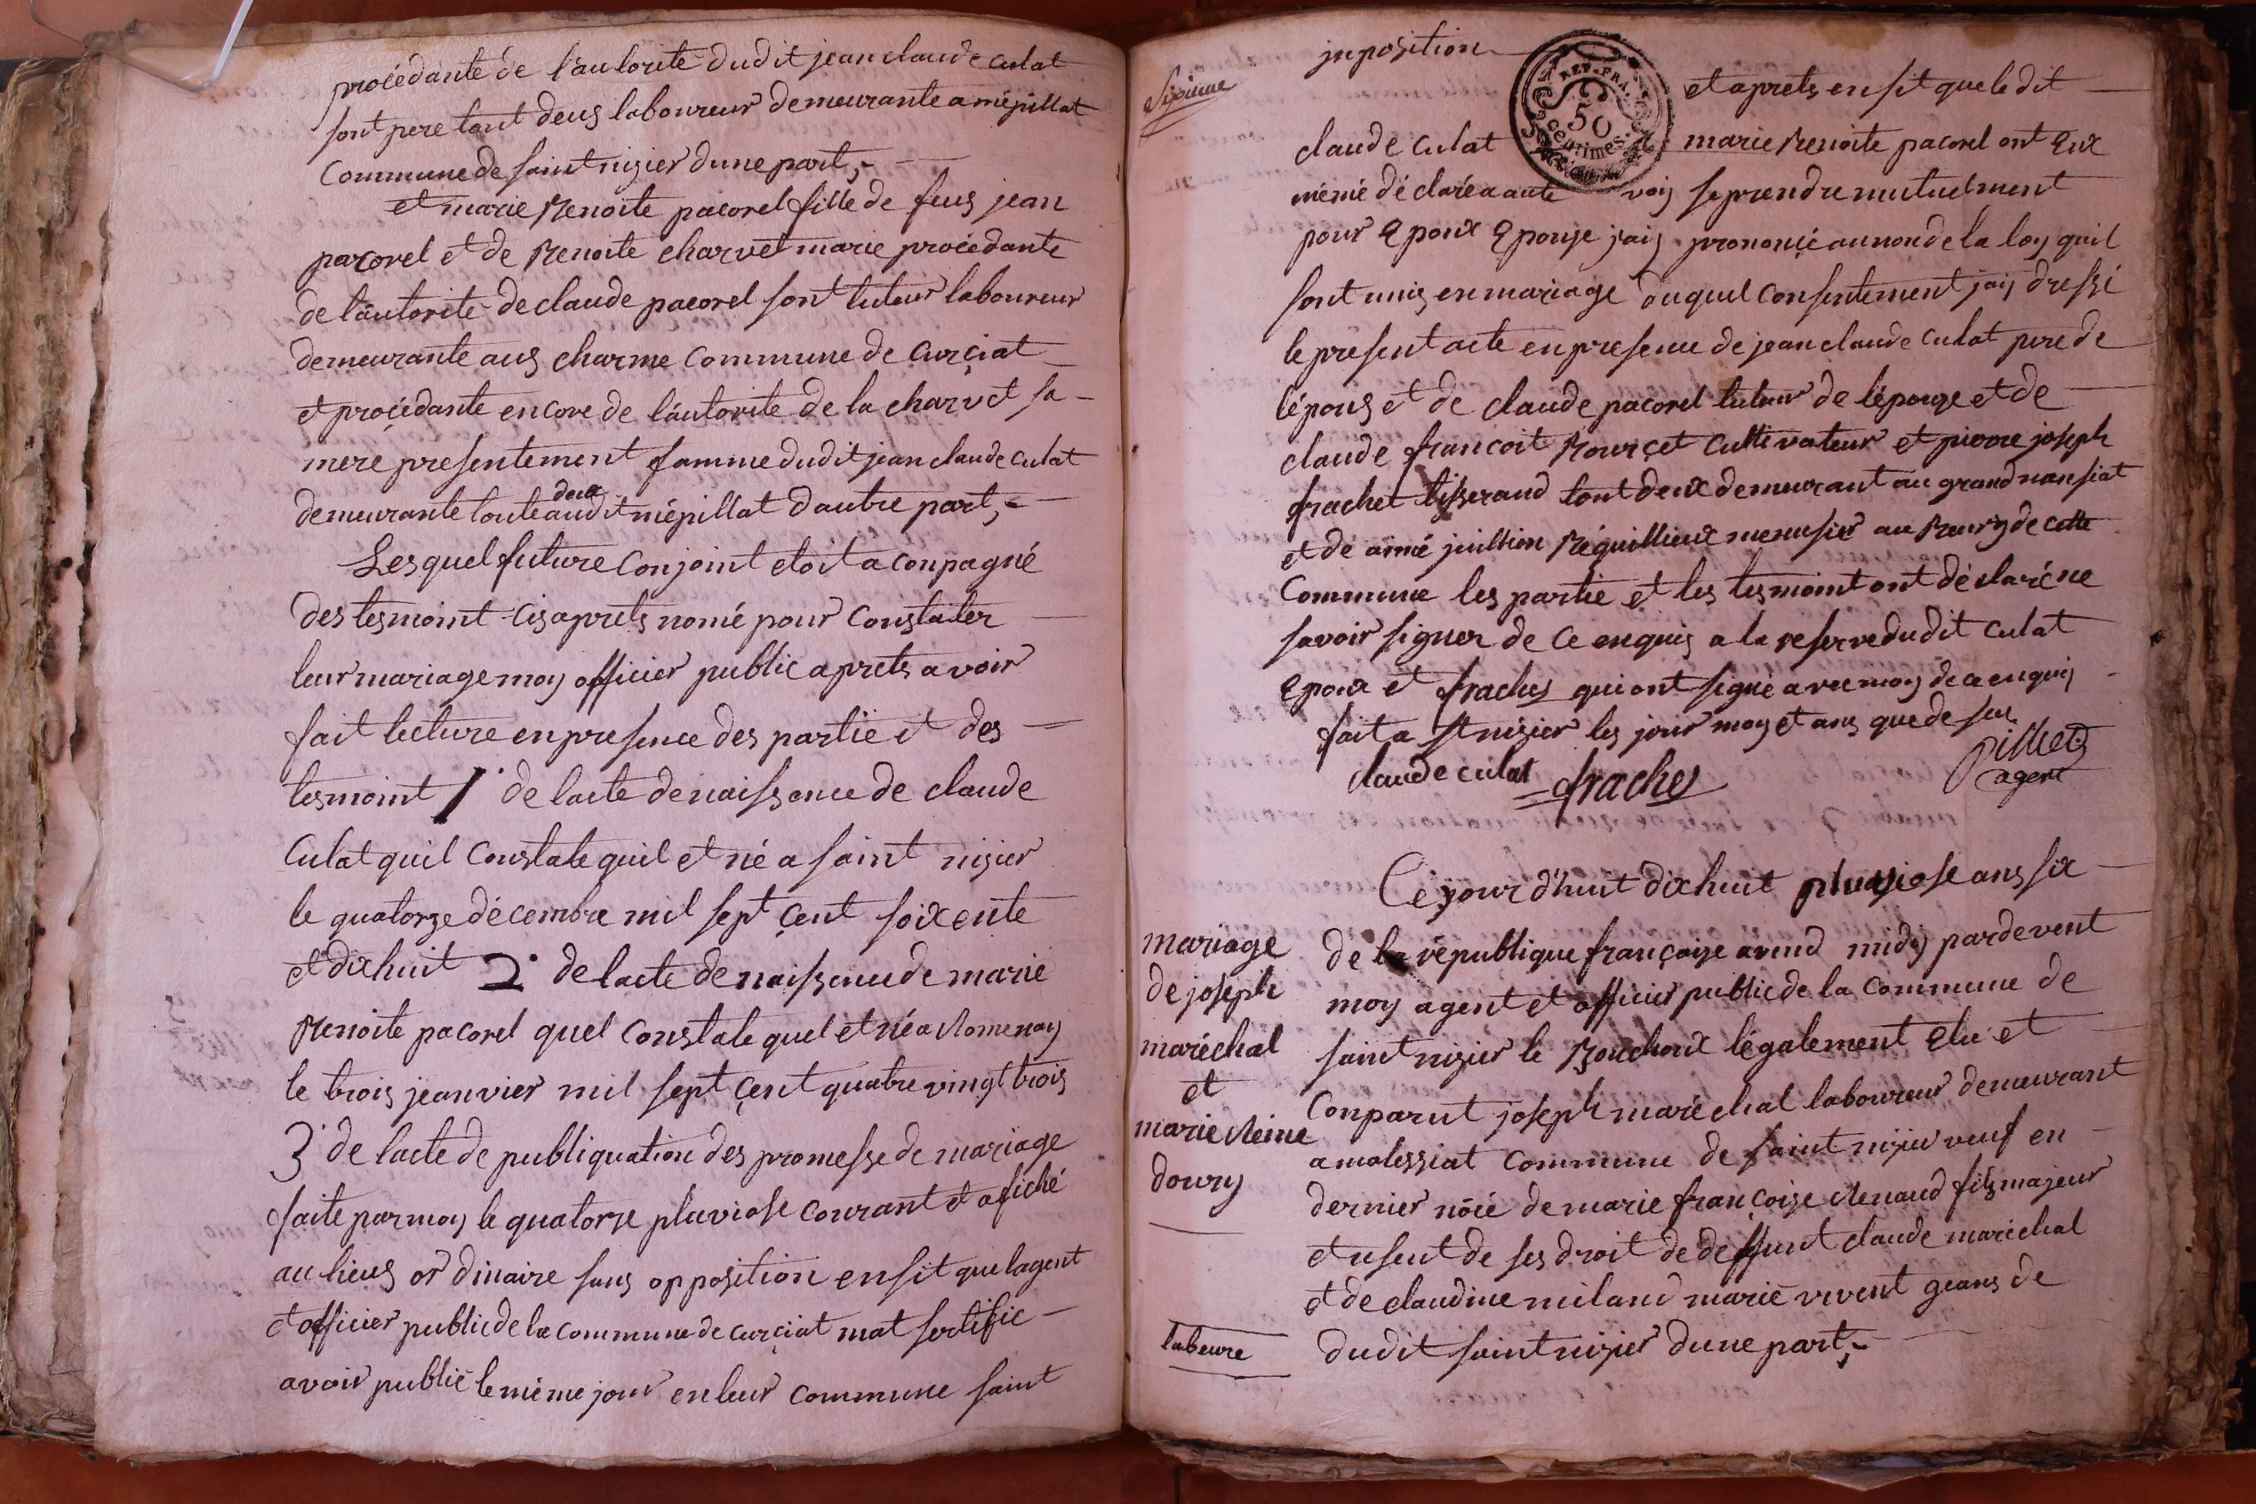 procédante de l'autorite dudit jean claude culat
sont pere tout deus laboureur demeurante a mépillat
commune de saint nizier dune part,
et marie Benoite pacorel fille de feus jean
pacorel et de Benoite charvet marie procédante
de l'autorite de claude pacorel sont tuteur laboureur
demeurante aus charme commune de curçiat
et proçédante encore de láutorite de la charvet sa
mere presentement famme dudit jean claude culat
demeurante toute deux audit mépillat dautre part,
Lesquel future conjoint etoit aconpagné
des tesmoint cis aprets nomé pour constater
leur mariage moy officier public aprets avoir
fait lecture en presence des partie et des
tesmoint 1° de lacte de naissence de claude
Culat quil constate quil et né a saint nizier
le quatorze décembre mil sept çent soixente
et dixhuit 2° de lacte de naissence de marie
Benoite pacorel quel constate quel et né a Romenay
le trois jeanvier mil sept çent quatre vingt trois
3° de lacte de publiquation des promesse de mariage
faite par moy le quatorze pluviose courant et afiché
au lieus ordinaire sans opposition ensit que lagent
et officier public de la commune de curçiat mat sertific
avoir publié le même jour en leur commune saint
Sixieme
inposition
REP. FRA.
50
centimes.
et aprets ensit que le dit
claude culat marie Benoite pacorel ont Eux
même déclaré a aute voix se prendre mutuelment
pour Epoux Epouze jaiy prononçé au non de la loy quil
sont unis en mariage duquel consentement jaiy dressé
le present acte en presence de jean claude culat pere de
lépous et de claude pacorel tuteur de lépouze et de
claude francoit Bourçet cultivateur et pierre joseph
frachet tisserand tout deux demeurant au grand nansiat
et de aimé juillien Réguillieux menusier au Bourg de cette
Commune les partie et les tesmoint ont déclaré ne
savoir signer de ce enquis a la reserve dudit culat
Epoux et frachet qui ont signé avec moy de ce enquis
fait a St nizier les jour moy et ans que de sus
claude culat frachet Pillet
agent
Cejourd'huit dixhuit pluviose ans six
mariage
de joseph
maréchal
et
marie Reine
doury
de la république françoise avend midy pardevent
moy agent et officier public de la commune de
saint nizier le Bouchoux légalement Elu et
Conparut joseph maréchal laboureur demeurant
a malessiat commune de saint nizier veuf en
dernier nôcé de marie françoise Renaud fils majeur
et usent de ses droit de deffunt claude maréchal
et de claudine miland marie vivent geans de
labeure
dudit saint nizier dune part,